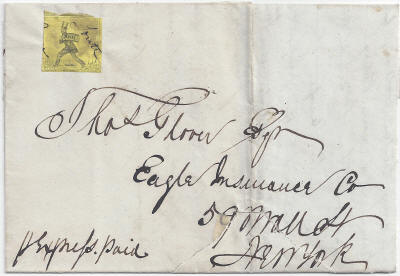 Thos Glover Esqr
Eagle Insurance Co
59 Wall St
New York
p Express. paid